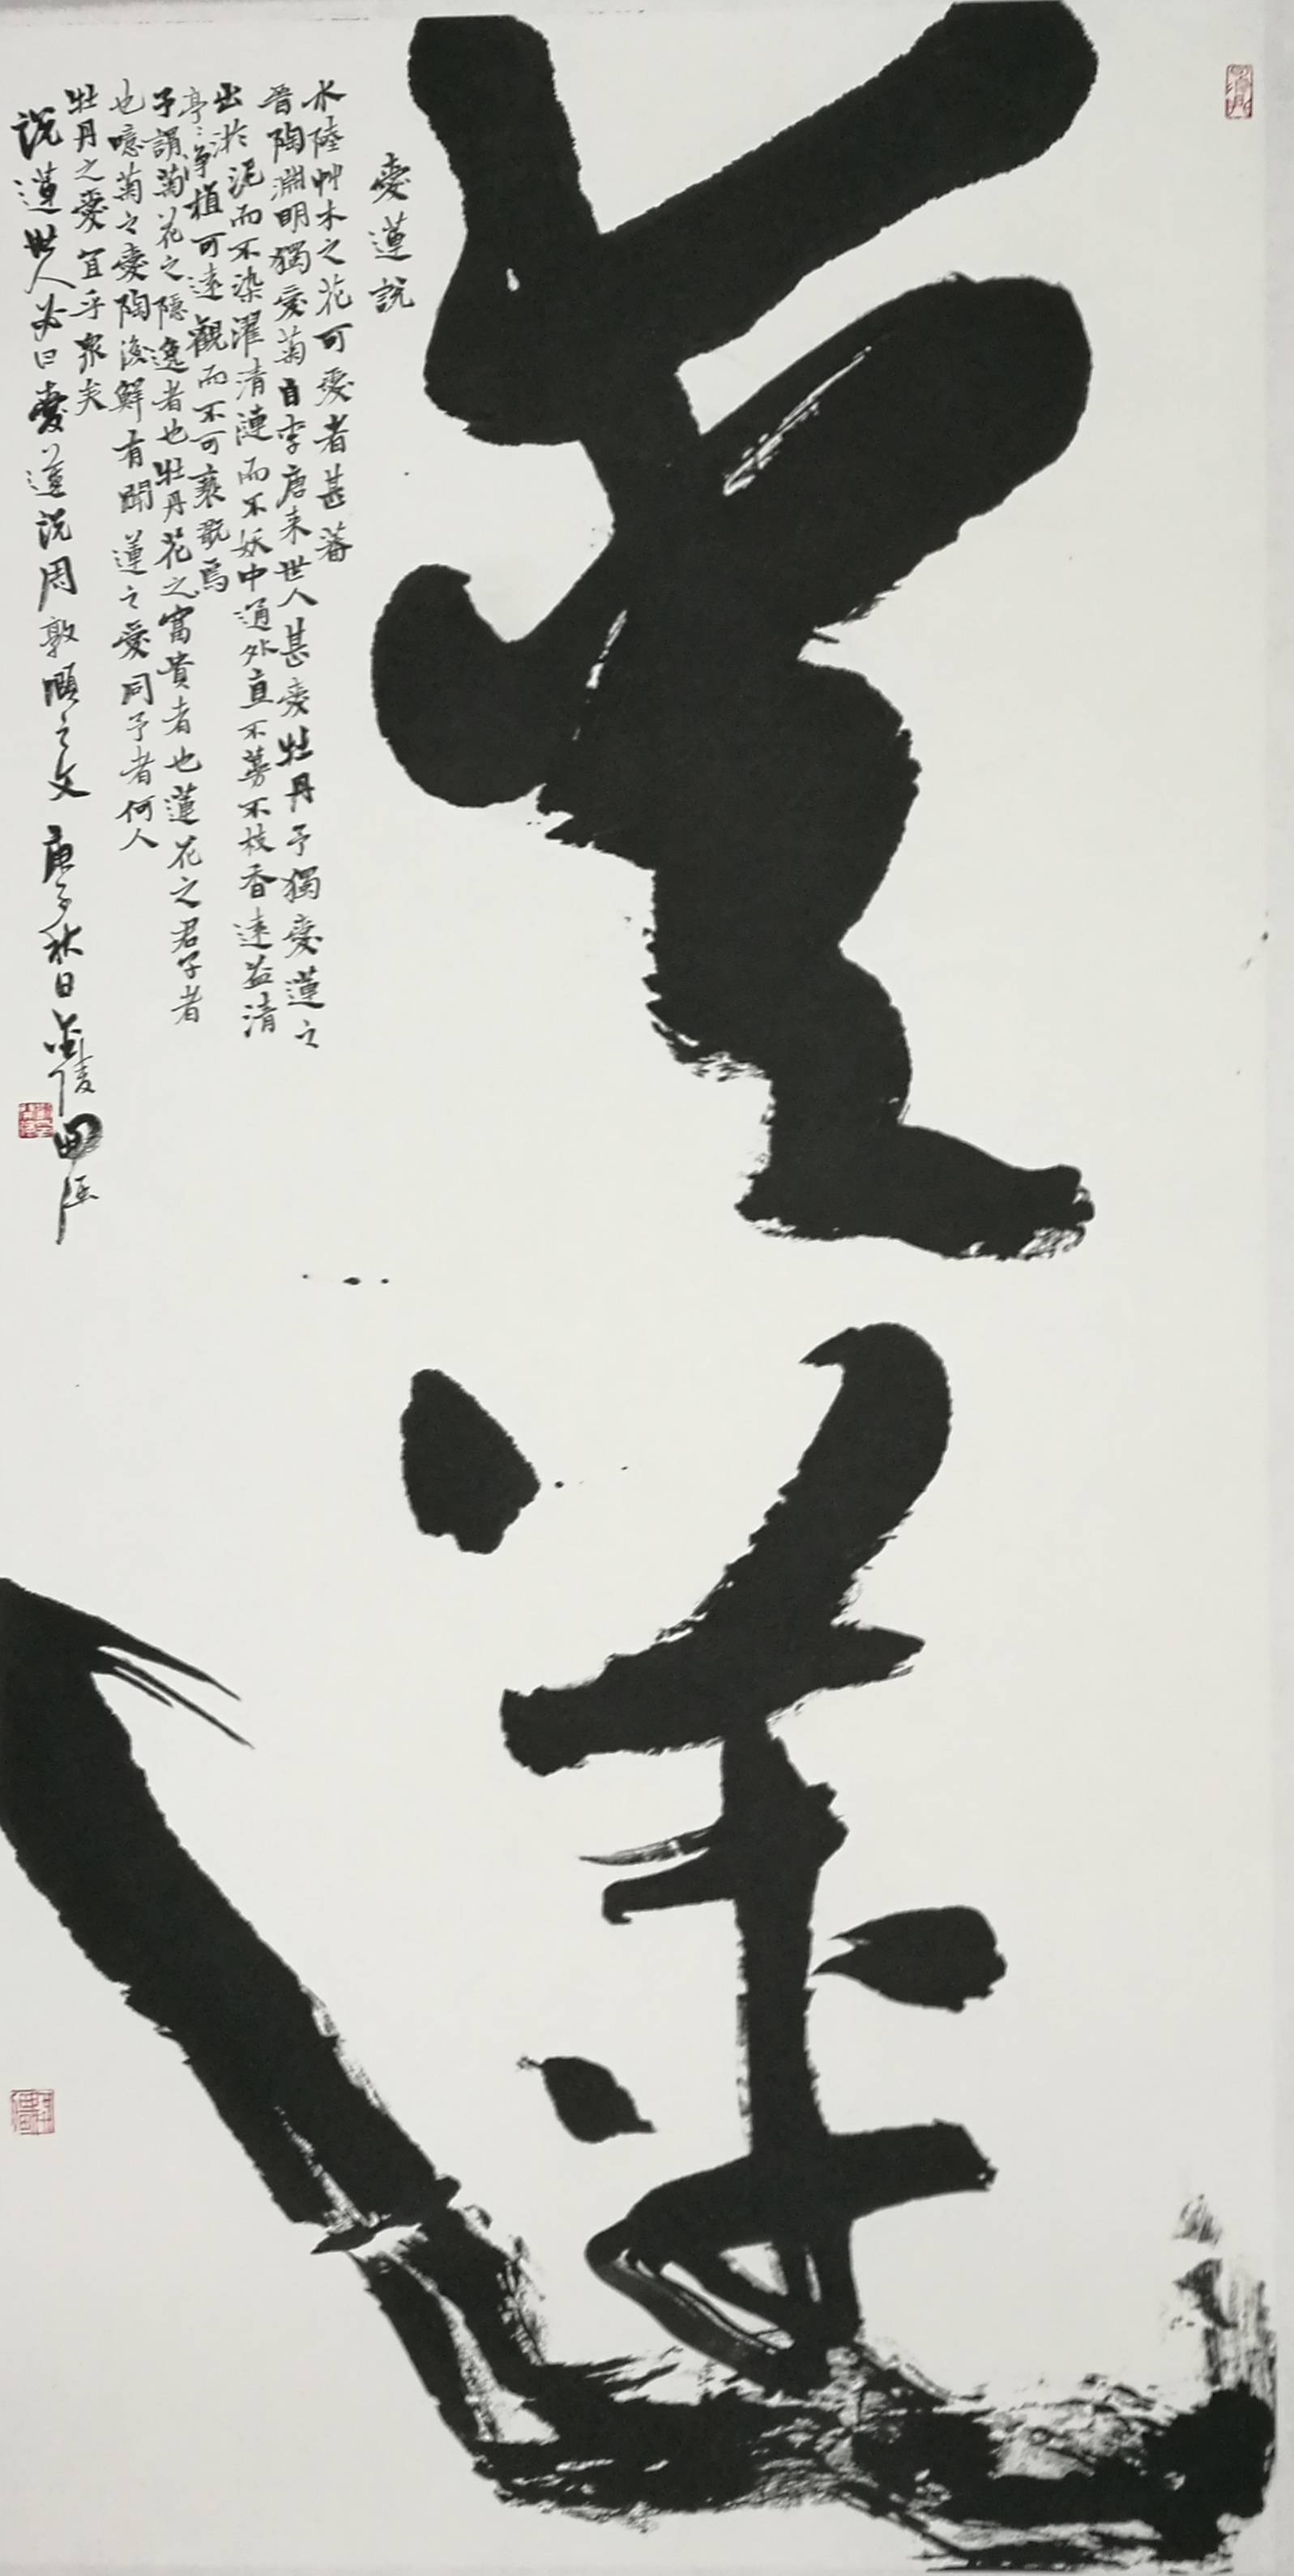 愛蓮
愛蓮説
水陸艸木之花可愛者甚蕃
晉陶淵明獨愛菊自李唐来世人甚愛牡丹予獨愛蓮之
出淤泥而不染濯清漣而不妖中通外直不蔓不枝香遠益清
亭〻淨植可遠觀而不可褻翫焉
予謂菊花之隱逸者也牡丹花之富貴者也蓮花之君子者
也噫菊之愛陶後鮮有聞蓮之愛同予者何人
牡丹之愛宜乎衆矣
説蓮世人必曰愛蓮説周敦頤之文 庚子秋日金陵田